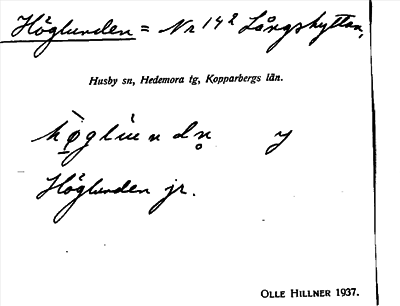 Höglunden = Nr 14² Långshyttan,
Husby sn, Hedemora tg, Kopparbergs län.
høglund̥n y
Höglunden jr.
OLLE HILLNER 1937.